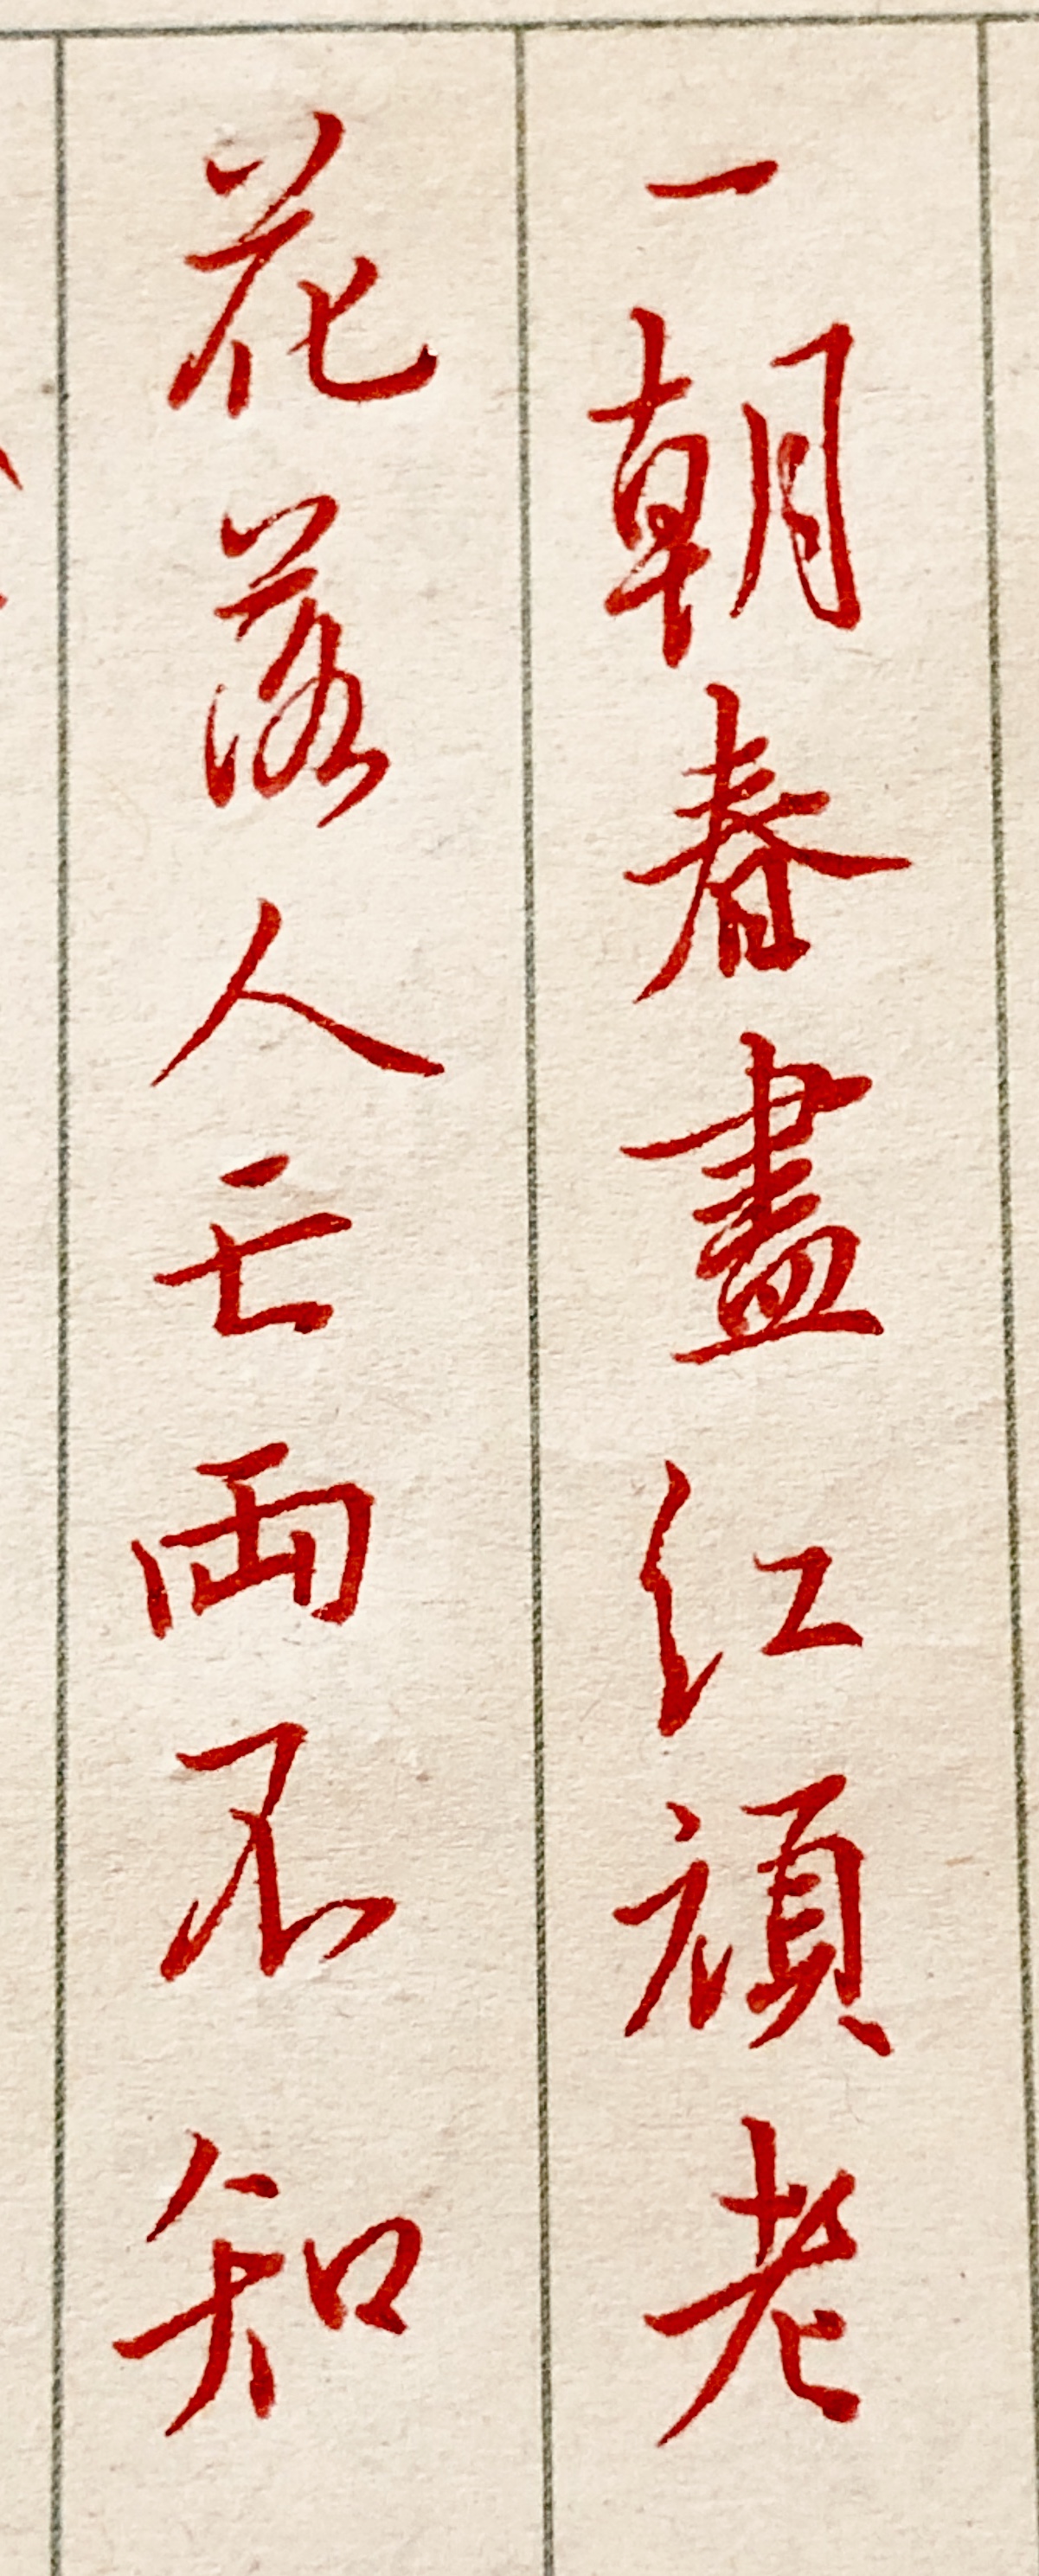 一朝春盡红顔老
花落人亡兩不知